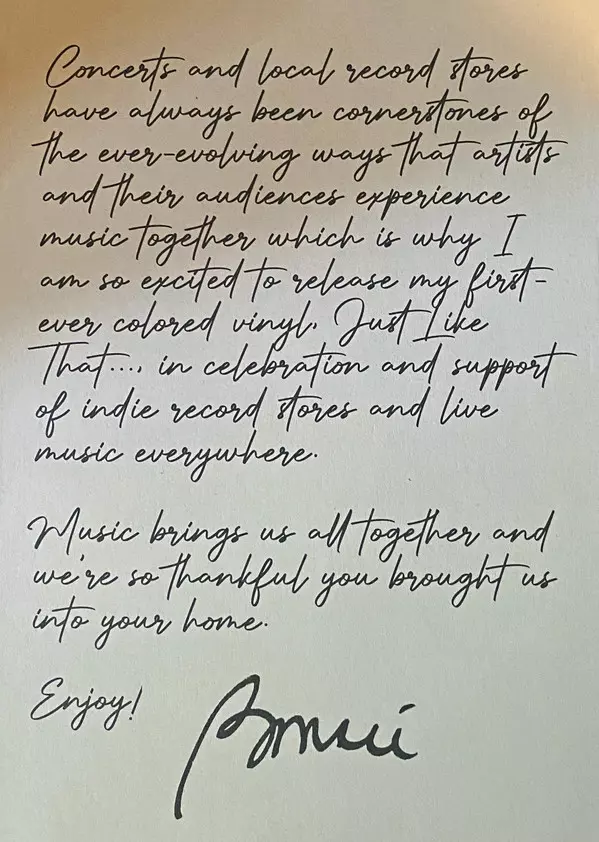 Concerts and local record stores
have always been cornerstones of
the ever-evolving ways that artists
and their audiences experience
music together which is why I
am so excited to release my first-
ever colored vinyl, Just Like
That..., in celebration and support
of indie record stores and live
music everywhere.
Music brings us all together and
we're so thankful you brought us
into your home.
Enjoy!
Bonnie